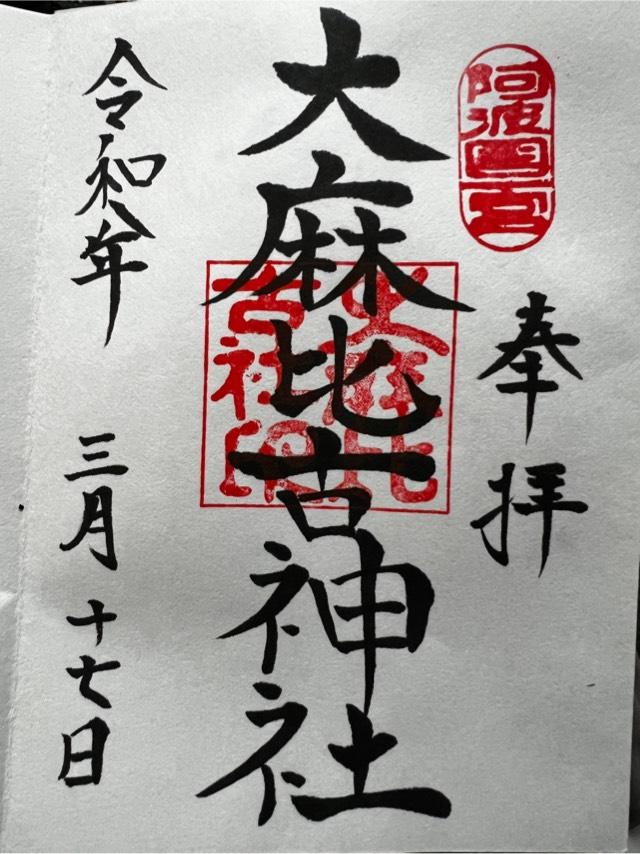 阿波國一宮
奉拝
大麻比古神社
大麻比古社印
令和八年
三月十七日